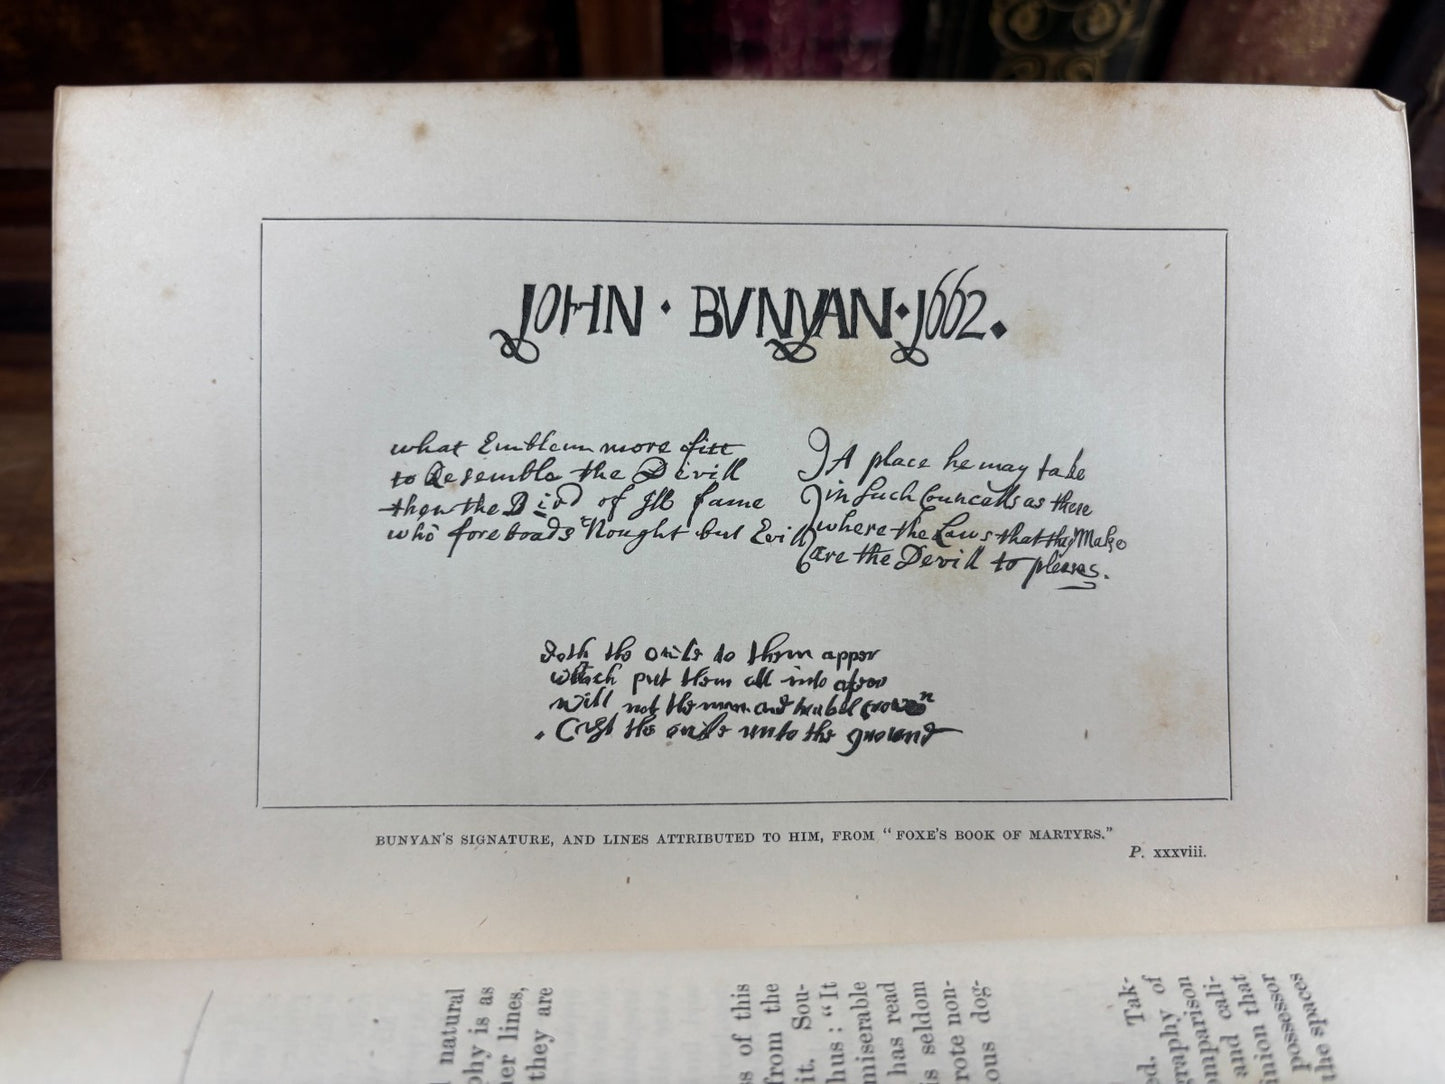 JOHN · BUNYAN · 1662.
what Emblem more fitt
to Resemble the Devill
then the Bird of Ill fame
who foreboads Nought but Evill
A place he may take
in such Councells as these
where the Laws that they Make
are the Devill to pleases.
doth the owile to them apper
which put them all into afear
will not the man and
Cast the owile unto the ground
BUNYAN'S SIGNATURE, AND LINES ATTRIBUTED TO HIM, FROM "FOXE'S BOOK OF MARTYRS."
P. xxxviii.
natural
phy is as
her lines,
they are
s of this
from the
it. Sou-
hus: "It
miserable
has read
is seldom
rote non-
ous dog-
ed. Tak-
graphy of
mparison
and cali-
nion that
possessor
the spaces